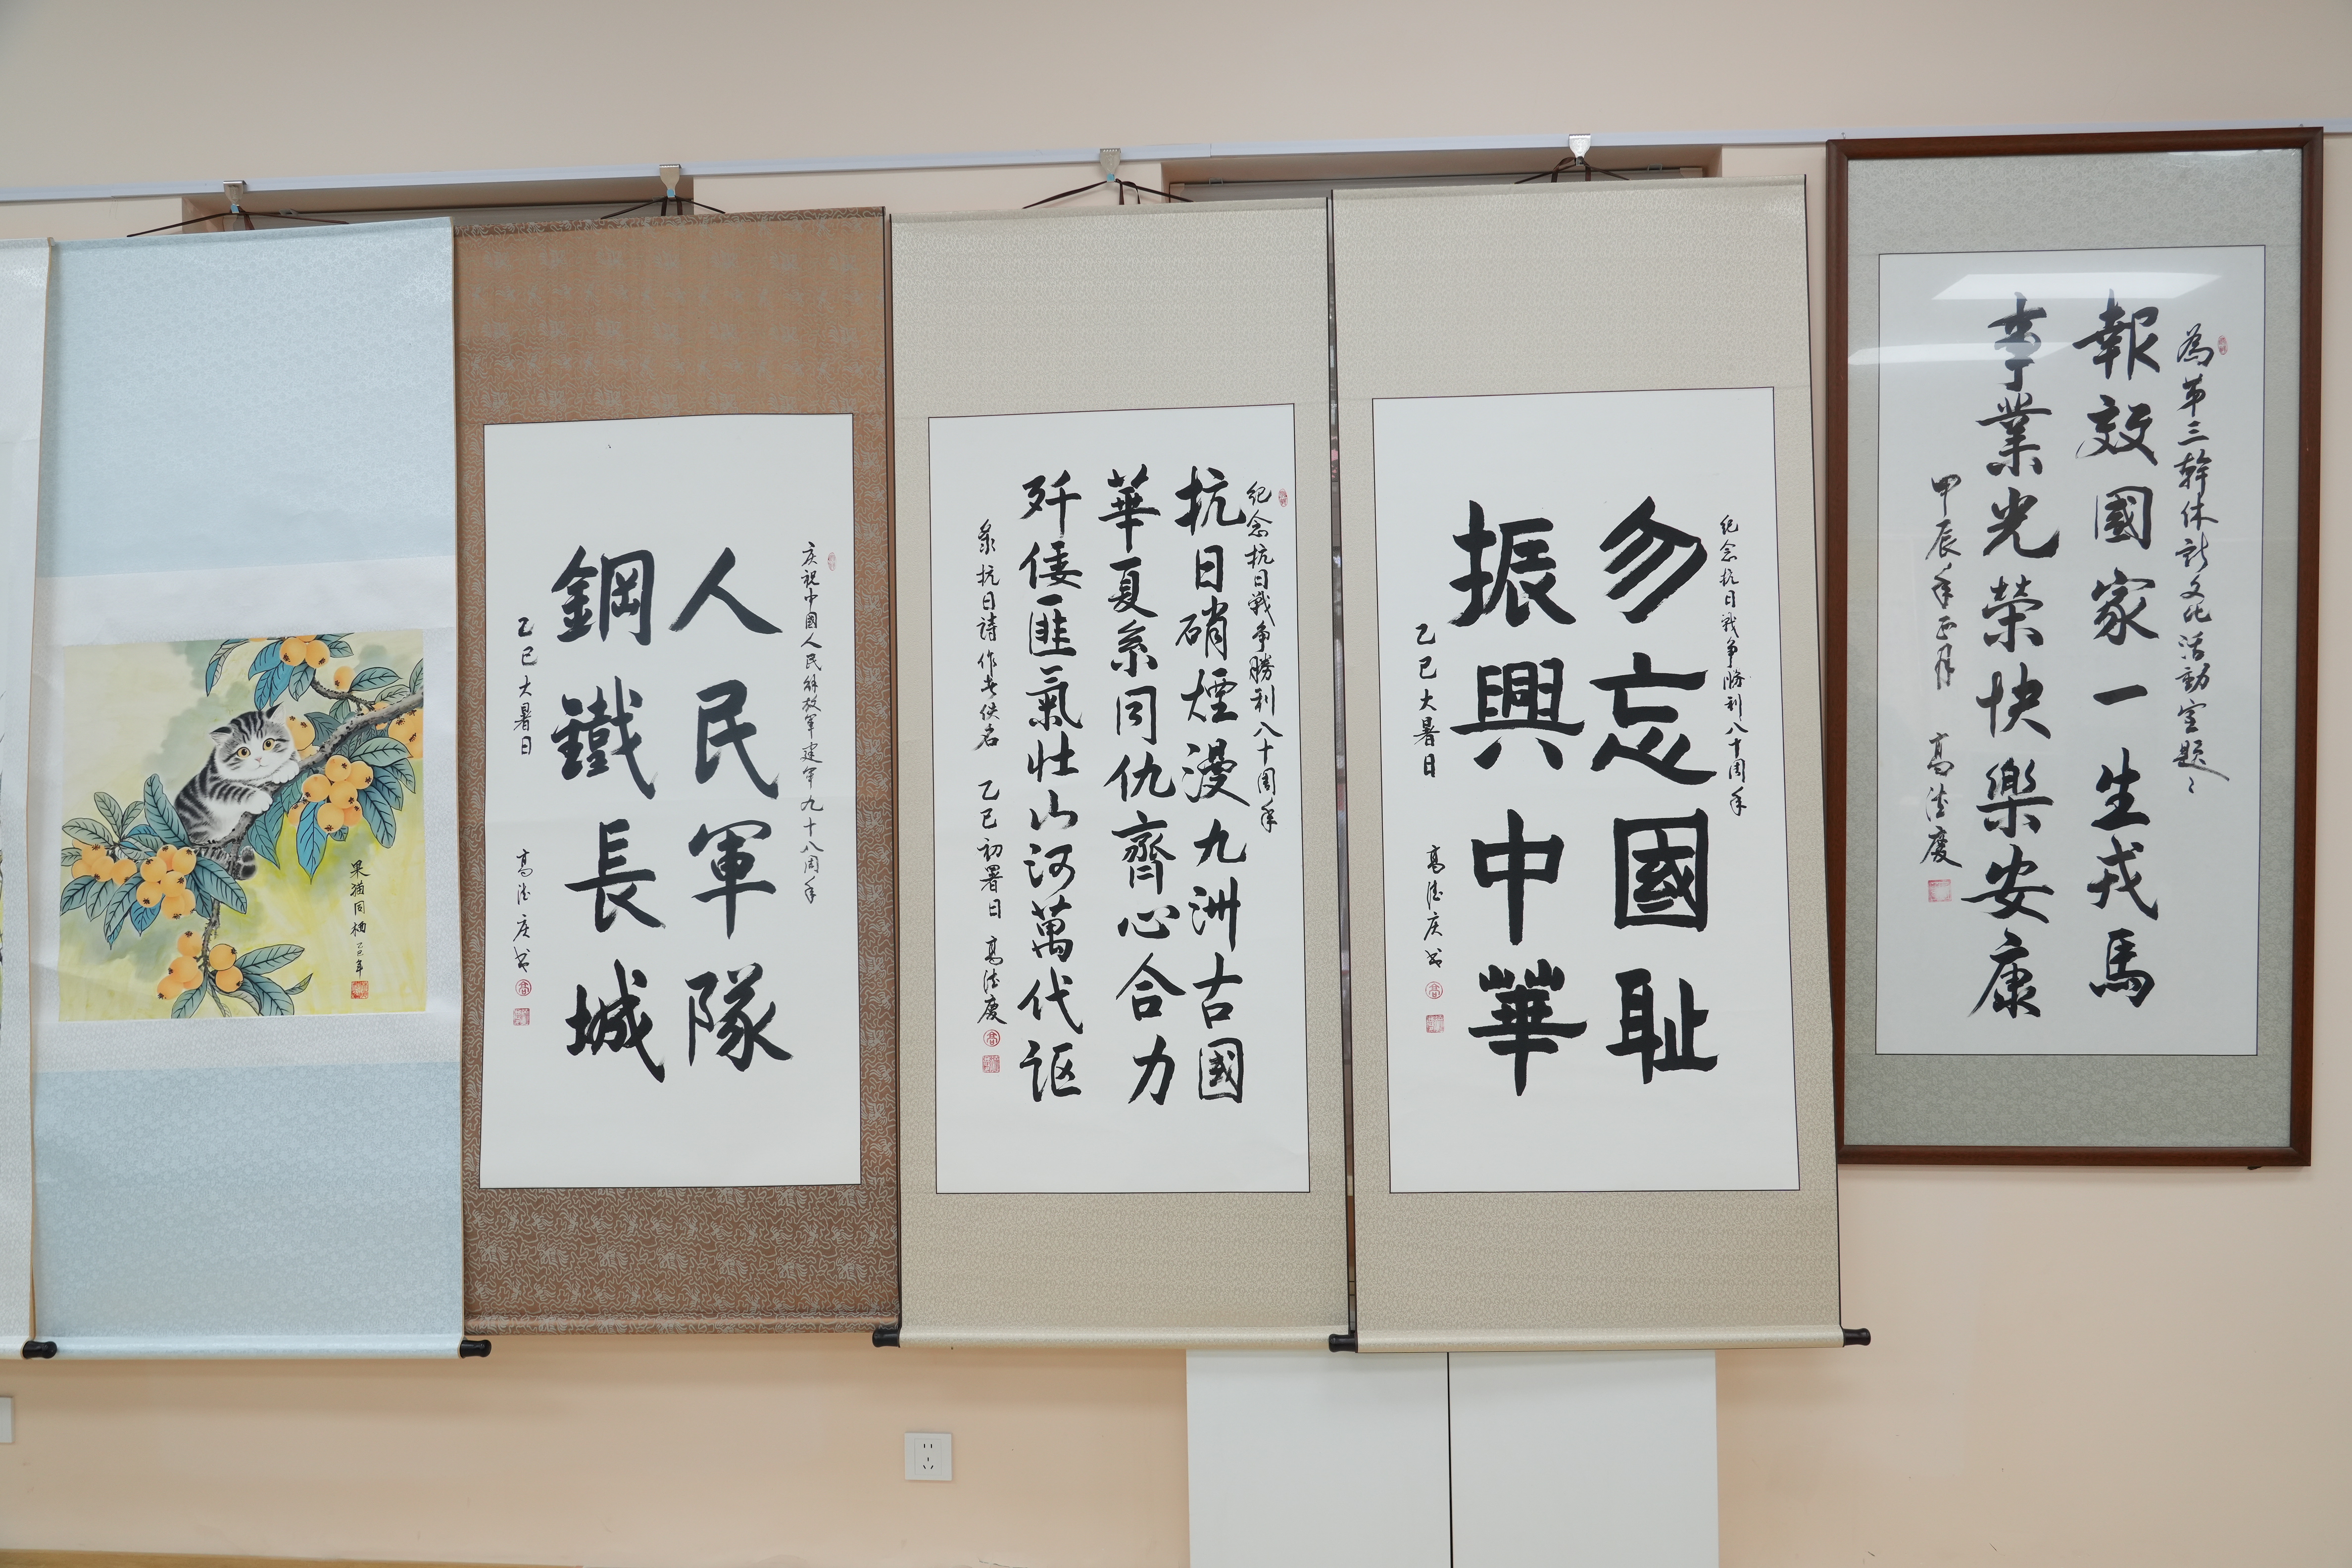 為第三幹休所文化活動室題
報效國家一生戎馬
事業光榮快樂安康
甲辰年正月 高德慶
紀念抗日戰争勝利八十周年
勿忘國耻
振興中華
乙巳大暑日 高德庆书
紀念抗日戰争勝利八十周年
抗日硝煙漫九洲古國
華夏系同仇齊心合力
歼倭匪氣壮山河萬代讴
录抗日詩作者佚名 乙巳初署日 高德慶
庆祝中國人民解放軍建軍九十八周年
人民軍隊
鋼鐵長城
乙巳大暑日 高德庆书
果猫同栖 乙巳年